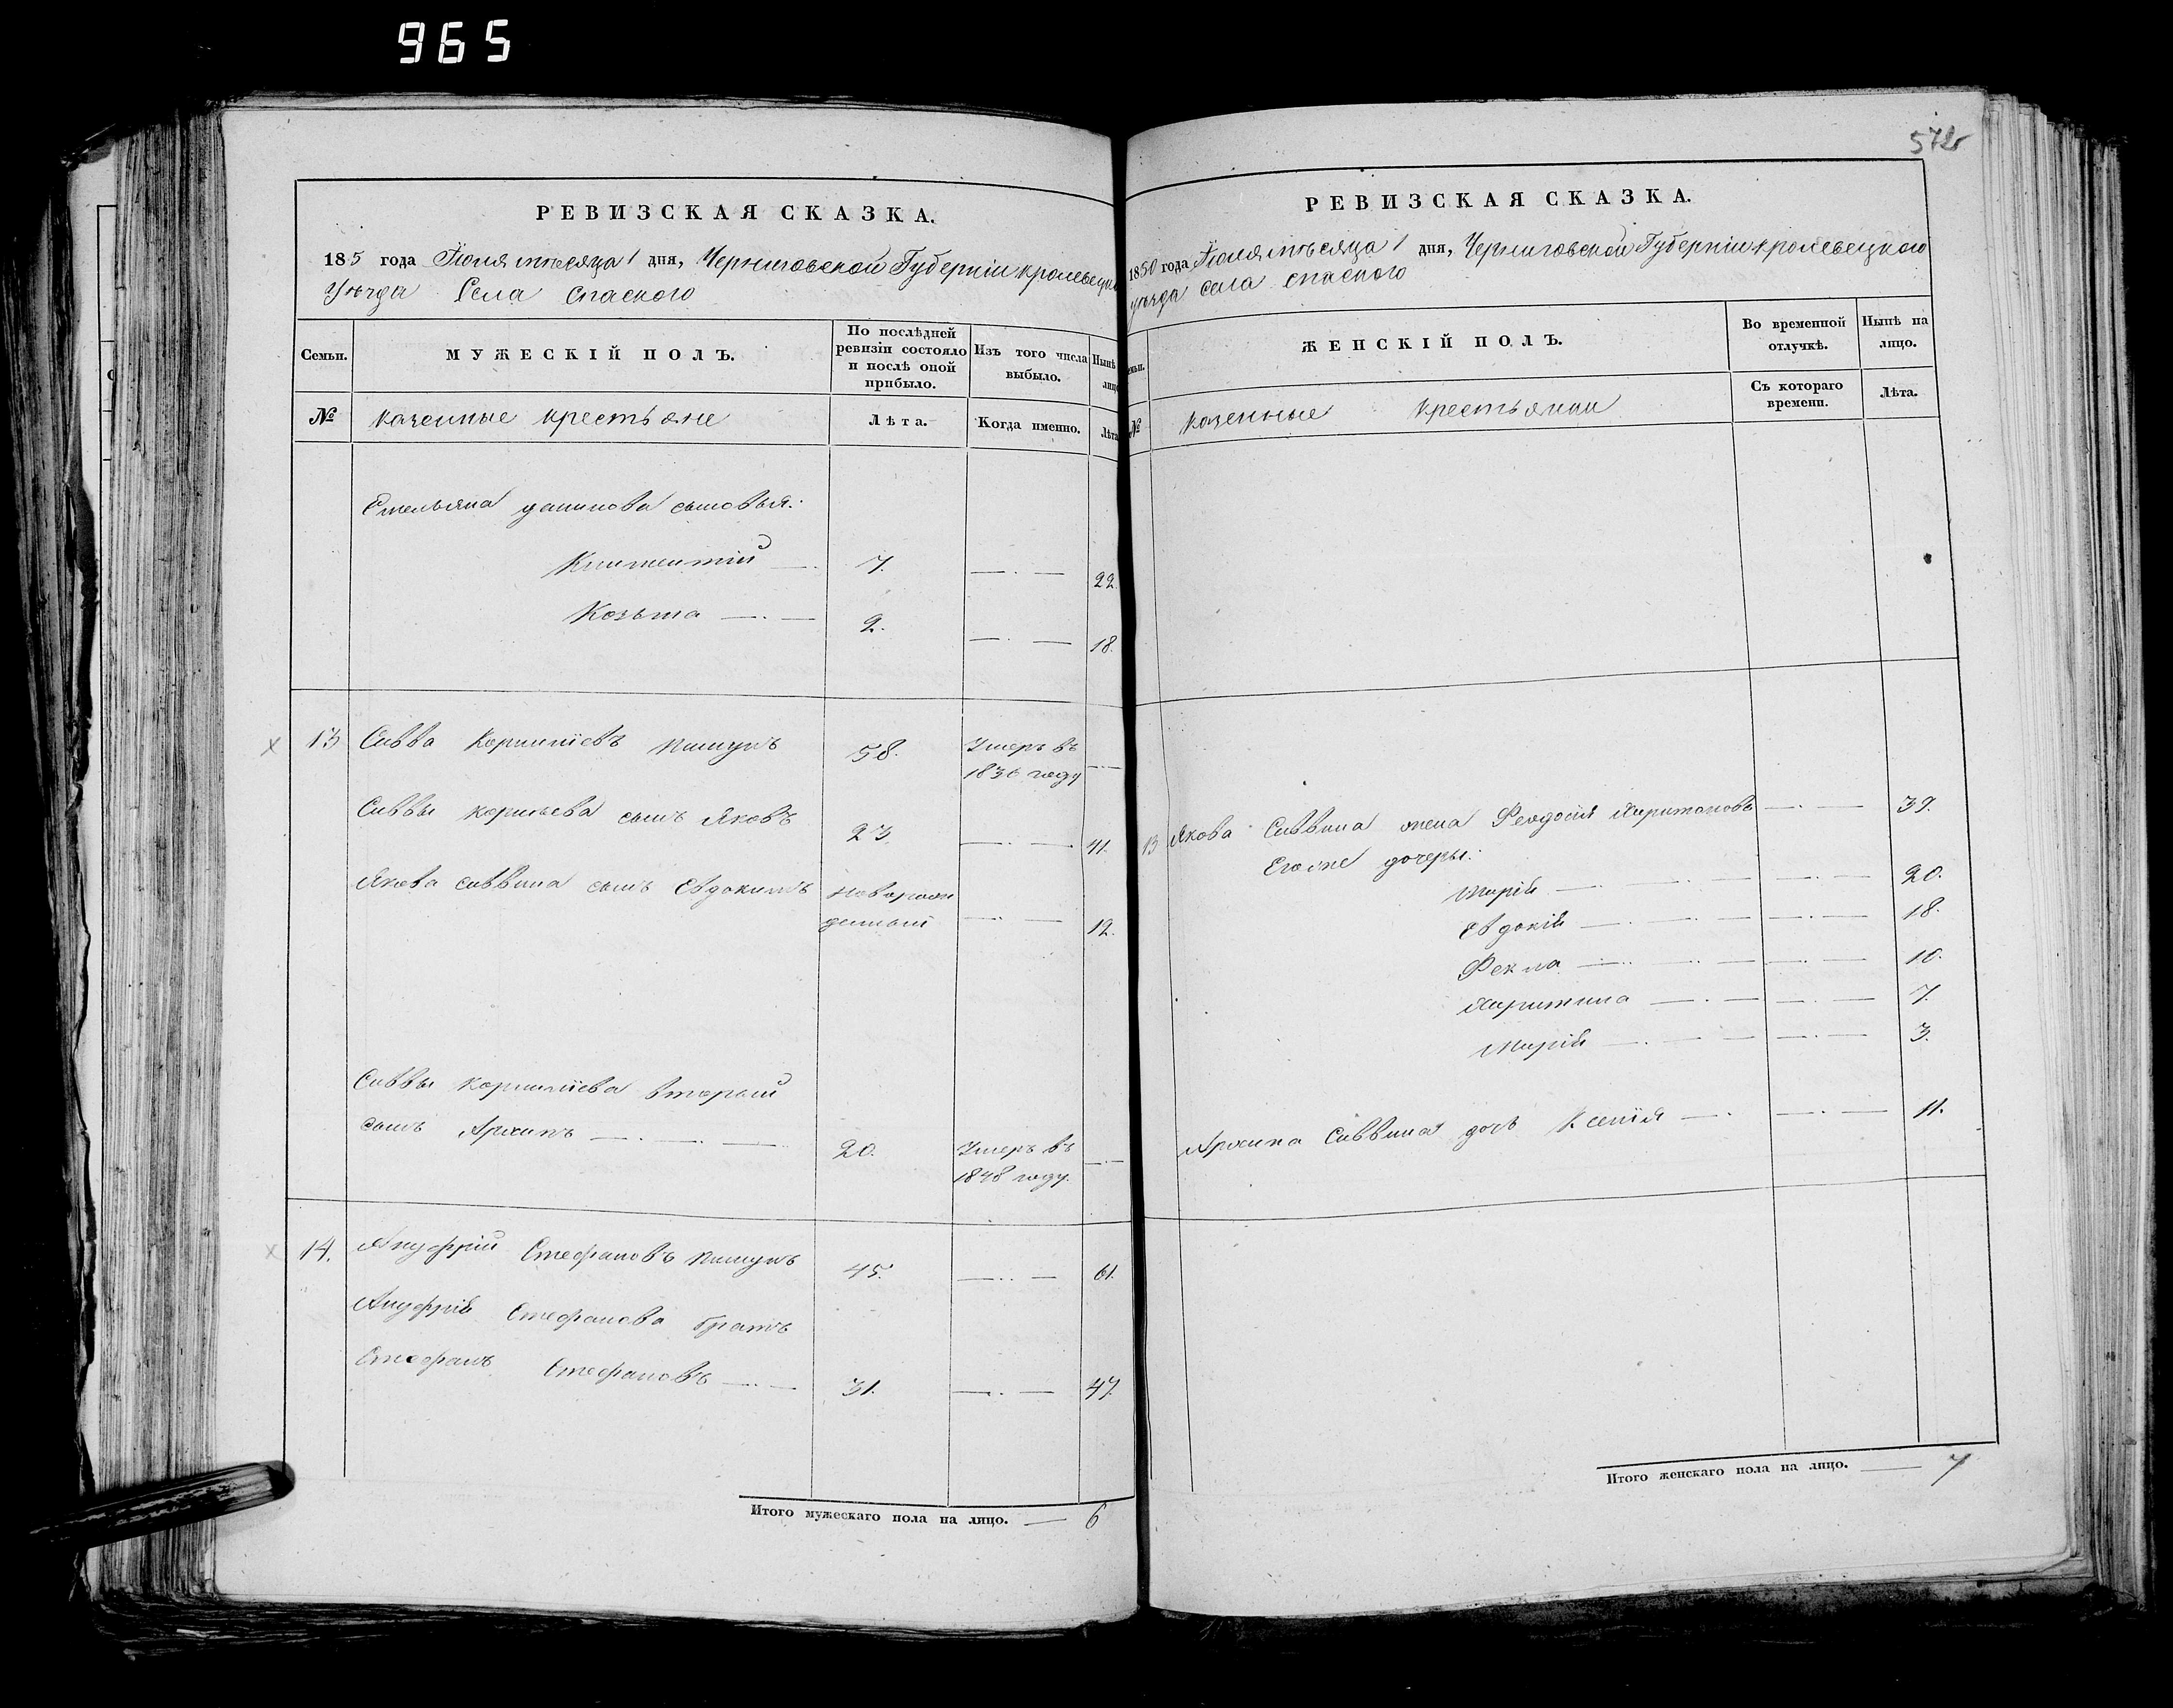 965
572
РЕВИЗСКАЯ СКАЗКА.
185 года Іюля мѣсяца 1 дня, Черниговской Губерніи кролевецка
уѣзда Села Спаского
Семьи.
МУЖЕСКІЙ ПОЛЪ.
По послѣдней ревизіи состояло и послѣ оной прибыло.
Изъ того числа выбыло.
Нынѣ лицо
№
казенные крестьяне
Лѣта.
Когда именно.
Лѣта
Емельяна данилова сыновья:
7. —.— 22.
Козьма —.— 2. —.— 18.
13 Савва Корниліевъ 58. Умеръ въ —.—
1836 году
Саввы корнѣева сынъ Яковъ 23 —.— 41.
Якова саввина сынъ Евдокимъ новорож
денный —.— 12.
Саввы Корниліева второй
сынъ Архипъ —.—.— 20. Умеръ въ —.—
1848 году.
14. Ануфрій Стефановъ 45. —.— 61.
Ануфрія Стефанова братъ
Стефанъ Стефановъ —.— 31. —.— 47.
Итого мужескаго пола на лицо. — 6
РЕВИЗСКАЯ СКАЗКА.
1850 года Іюля мѣсяца 1 дня, Черниговской Губерніи кролевецкого
уѣзда села спаского
емьи.
ЖЕНСКІЙ ПОЛЪ.
Во временной отлучкѣ.
Нынѣ на лицо.
№
казенные крестьянки
Съ котораго времени.
Лѣта.
13 Якова Саввина жена Феодосія Харитонова —.— 39.
Его же дочеры:
Марія —.— 20.
Евдокія —.— 18.
Фекла —.— 10.
Харитина —.— 7.
Марія —.— 3.
Архипа Саввина дочь Ксенія —.— 11.
Итого женскаго пола на лицо. — 7